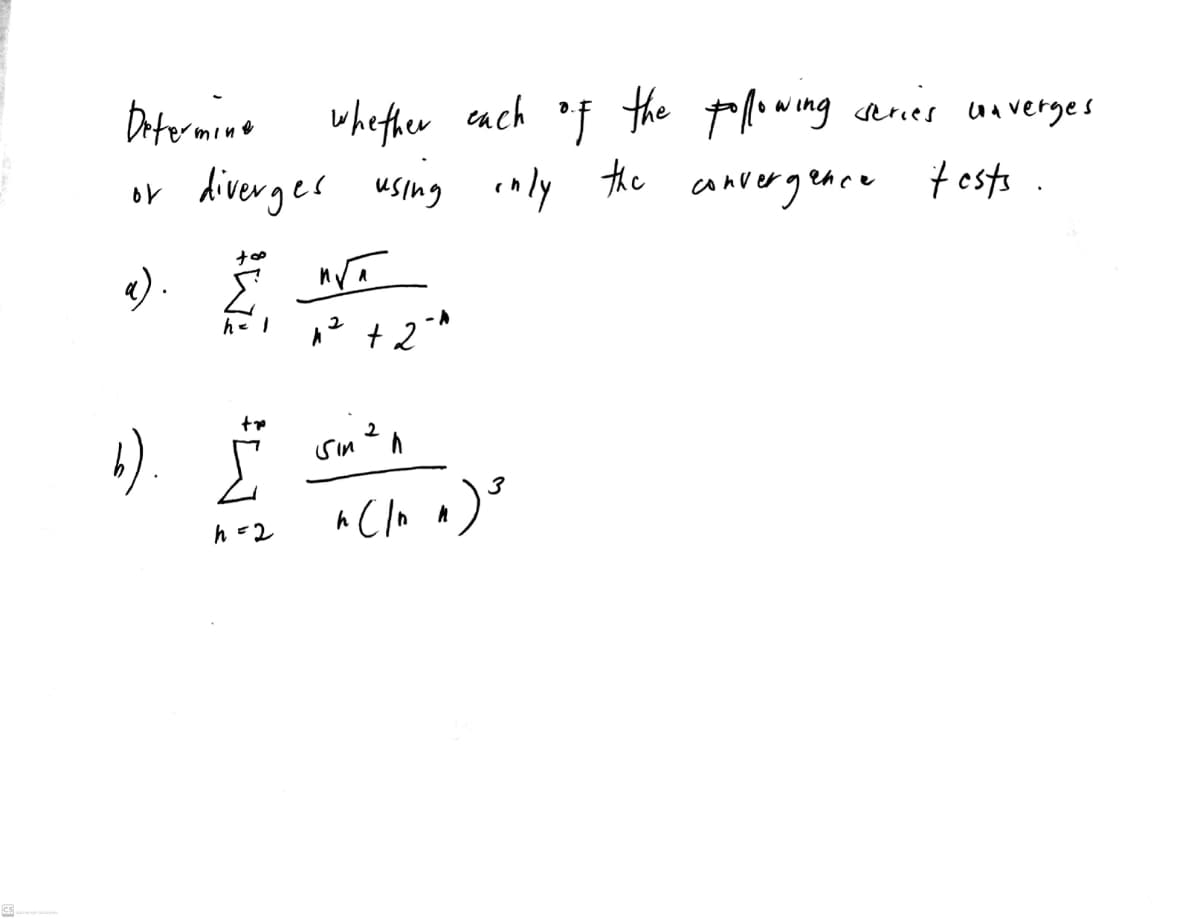 Determine whether each of the following series converges
or diverges using only the convergence tests.
a). +∞ Σ n=1 n√n / n² + 2⁻ⁿ
b). +∞ Σ n=2 sin² n / n (ln n)³
CS